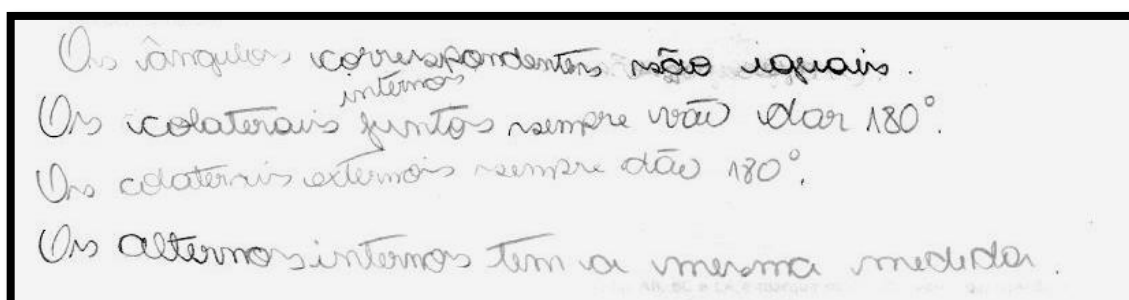 Os ângulos correspondentes são iguais.
internos
Os colaterais juntos sempre vão dar 180°.
Os colaterais externos sempre dão 180°.
Os alternos internos tem a mesma medida.